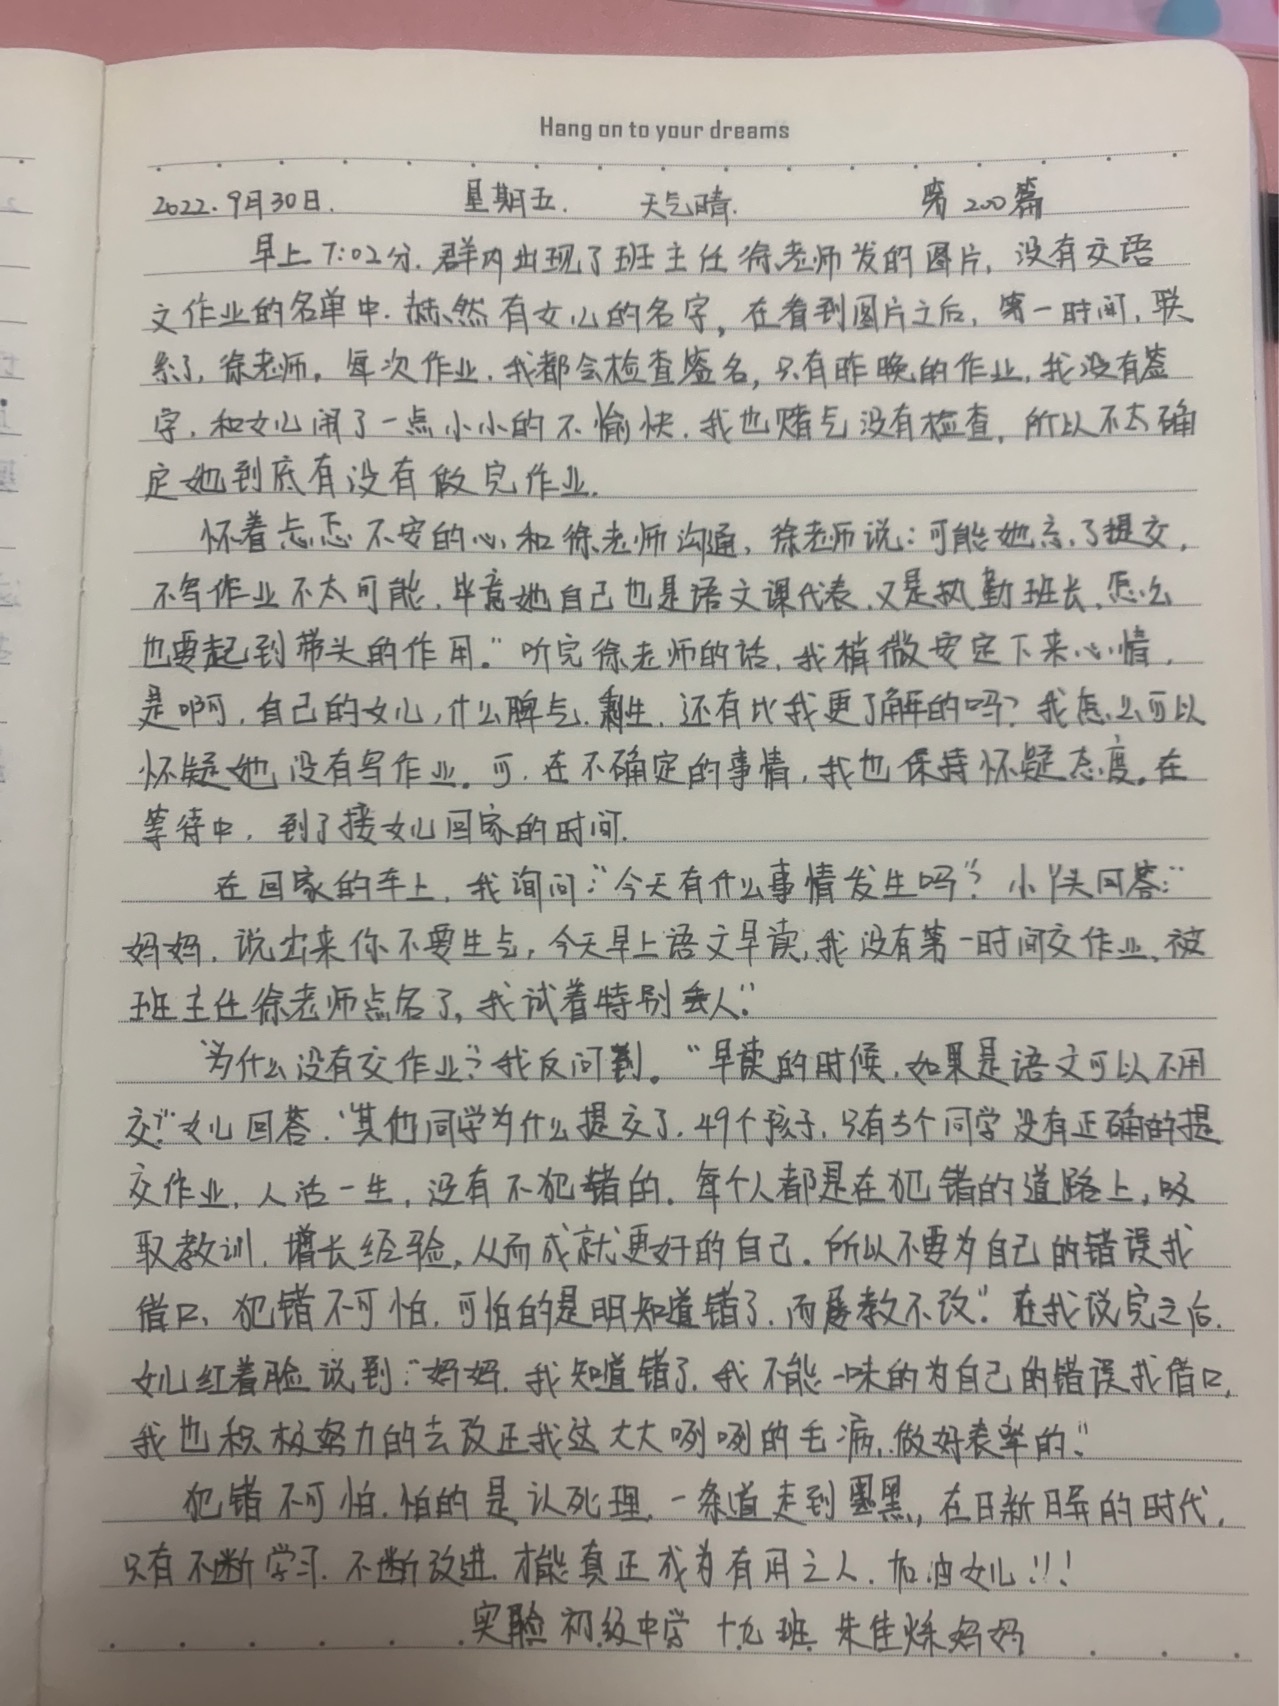 Hang on to your dreams
2022.9月30日. 星期五. 天气晴. 第200篇
早上7:02分.群内出现了班主任徐老师发的图片,没有交语
文作业的名单中.赫然有女儿的名字,在看到图片之后,第一时间,联
系了,徐老师,每次作业,我都会检查签名,只有昨晚的作业,我没有签
字,和女儿闹了一点小小的不愉快,我也赌气没有检查,所以不太确
定她到底有没有做完作业.
怀着忐忑不安的心和徐老师沟通,徐老师说:可能她忘了提交,
不写作业不太可能,毕竟她自己也是语文课代表,又是执勤班长,怎么
也要起到带头的作用。"听完徐老师的话,我稍微安定下来心情,
是啊,自己的女儿,什么脾气.剩生,还有比我更了解的吗?我怎么可以
怀疑她没有写作业。可,在不确定的事情,我也保持怀疑态度。在
等待中,到了接女儿回家的时间.
在回家的车上,我询问:"今天有什么事情发生吗"?小丫头回答:"
妈妈,说出来你不要生气,今天早上语文早读,我没有第一时间交作业,被
班主任徐老师点名了,我试着特别丢人"。
"为什么没有交作业?我反问到。"早读的时候,如果是语文可以不用
交"女儿回答,"其他同学为什么提交了,49个孩子,只有5个同学没有正确的提
交作业,人活一生,没有不犯错的.每个人都是在犯错的道路上,吸
取教训,增长经验,从而成就更好的自己。所以不要为自己的错误找
借口,犯错不可怕,可怕的是明知道错了,而屡教不改"。在我说完之后,
女儿红着脸说到:"妈妈,我知道错了,我不能一味的为自己的错误找借口,
我也积极努力的去改正我这大大咧咧的毛病,做好表率的。"
犯错不可怕,怕的是认死理,一条道走到黑,在日新日异的时代,
只有不断学习,不断改进,才能真正成为有用之人.加油女儿!!!
实验初级中学 十九班 朱佳烁妈妈